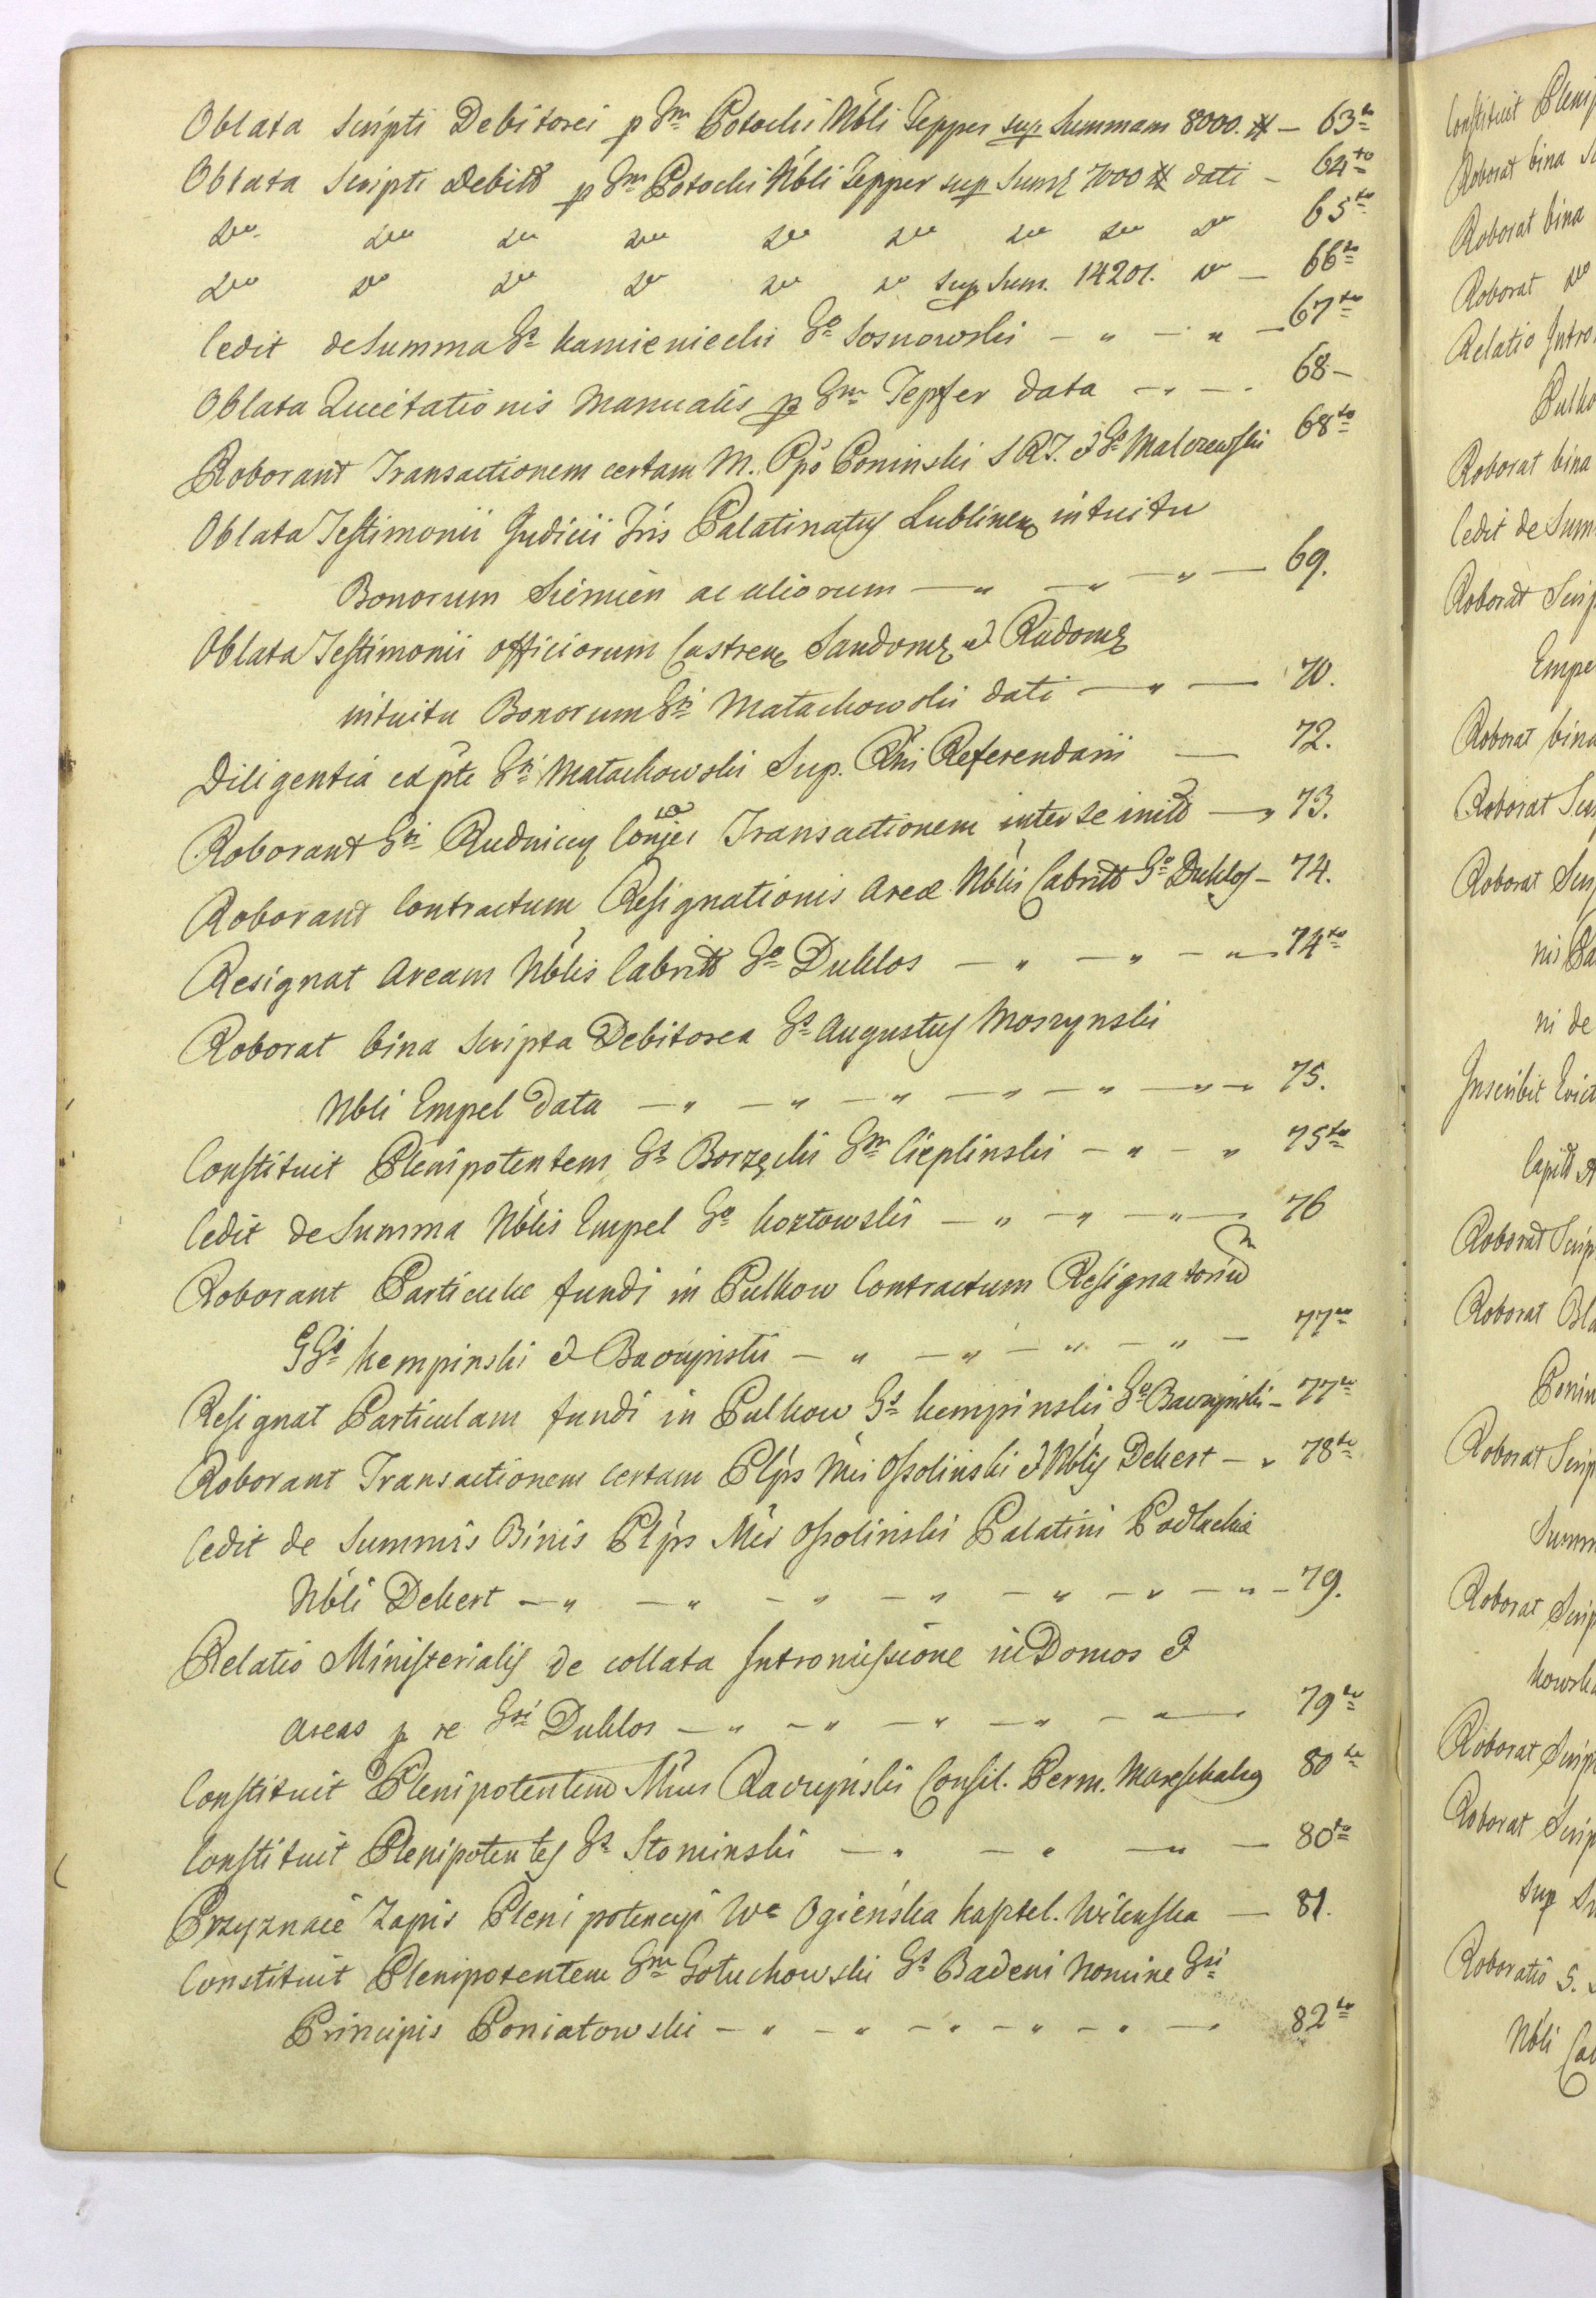 Oblata Scripti Debitorei p Gm Potocki Nbli Tepper sup Summam 8000. # — 63to
Oblata Scripti Debito p Gm Potocki Nbli Tepper sup Sum 7000 # dati — 64to
dto dto dto dto dto dto dto dto dto 65to
dto dto dto dto dto dto sup Sum. 14201. dto — 66to
Cedit de Summa Gs Kamieniecki Go Sosnowski — " — " — 67to
Oblata Quietationis Manualis p Gm Tepfer data — " — 68 —
Roborant Transactionem certam M. Pps Poninski S R J. et Gs Malczewski 68to
Oblata Testimonii Judicii Tris Palatinatus Lublinen intuitu
Bonorum Siemien ac aliorum — " — " — " — 69.
Oblata Testimonii officiorum Castren Sandom et Radom
intuitu Bonorum Gsi Małachowski dati — " — 70.
Diligentia ex pte Gsi Małachowski Sup. Rni Referendarii — 72.
Roborant Gsi Rudniccy Conjes Transactionem inter se inito — " 73.
Roborant Contractum Resignationis Areæ Nblis Cabrit Go Duklos — 74.
Resignat Aream Nblis Cabrit Go Duklos — " — " — " — 74to
Roborat bina Scripta Debitorea Gs Augustus Moszynski
Nbli Empel data — " — " — " — " — " — " — 75.
Constituit Plenipotentem Gs Borzęcki Gm Cieplinski — " — " 75to
Cedit de Summa Nblis Empel Go Kozłowski — " — " — " — 76
Roborant Particulæ fundi in Pulkow Contractum Resignatoriu
GGsi Kempinski et Baczynski — " — " — " — " — 77to
Resignat Particulam fundi in Pulkow Gs Kempinski Go Baczynski — 77to
Roborant Transactionem certam Plps Mei Ossolinski et Nblis Dekert — " 78to
Cedit de Summis Binis Plps Mei Ossolinski Palatini Podlachiæ
Nbli Dekert — " — " — " — " — " — " — " — 79.
Relatio Ministerialis de collata Intromissione in Domos et
areas p re Gsi Duklos — " — " — " — " — " — 79to
Constituit Plenipotentem Mnus Raczynski Consil. Perm. Mareschalus 80to
Constituit Plenipotentes Gs Słominski — " — " — " — 80to
Przyznaie Zapis Plenipotencyi We Ogienska Kasztel. Wilenska — 81.
Constituit Plenipotentem Gm Gołuchowski Gs Badeni Nomine Gsi
Principis Poniatowski — " — " — " — " — " — 82to
Roborat bina
Roborat bina
Roborat dto
Roborat bina
Cedit de Sum
Roborat bina